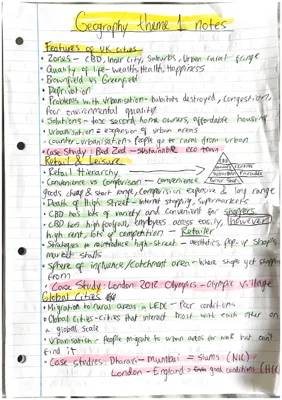 Geography theme 1 notes
Features of UK cities
• Zones - CBD, Inner City, Suburbs, Urban rural fringe
• Quality of life - wealth, health, happiness
• Brownfield vs Greenfield
• Deprivation
• Problems with urbanisation - habitats destroyed, congestion,
Poor environmental quality
• Solutions - tax second home owners, affordable housing
• Urbanisation = expansion of urban areas
• counter-urbanisation: People go to rural from urban
• Case Study: Bed Zed - sustainable eco town
Retail & Leisure
• Retail Hierarchy
• Convenience vs comparison - convenience
goods cheap & short range, comparison expensive & long range
• Death of High street - internet shopping, supermarkets
• CBD has lots of variety and convenient for shoppers
• CBD has high footfall, employees access easily, however
high rent, lots of competition - Retailer
• Strategies to reintroduce high-street - aesthetics, pop up shops,
market stalls
• Sphere of influence/Catchment area - where shops get shoppers
from
• Case Study: London 2012 Olympics - olympic village
Global Cities
• Migration to rural areas in LEDC - Poor conditions
• Global cities - cities that interact most with each other on
a global scale
• Urbanisation - People migrate to urban areas for work but can't
find it
• Case studies: Dharavi - Mumbai = slums (NIC)
London - England = good conditions (HIC)